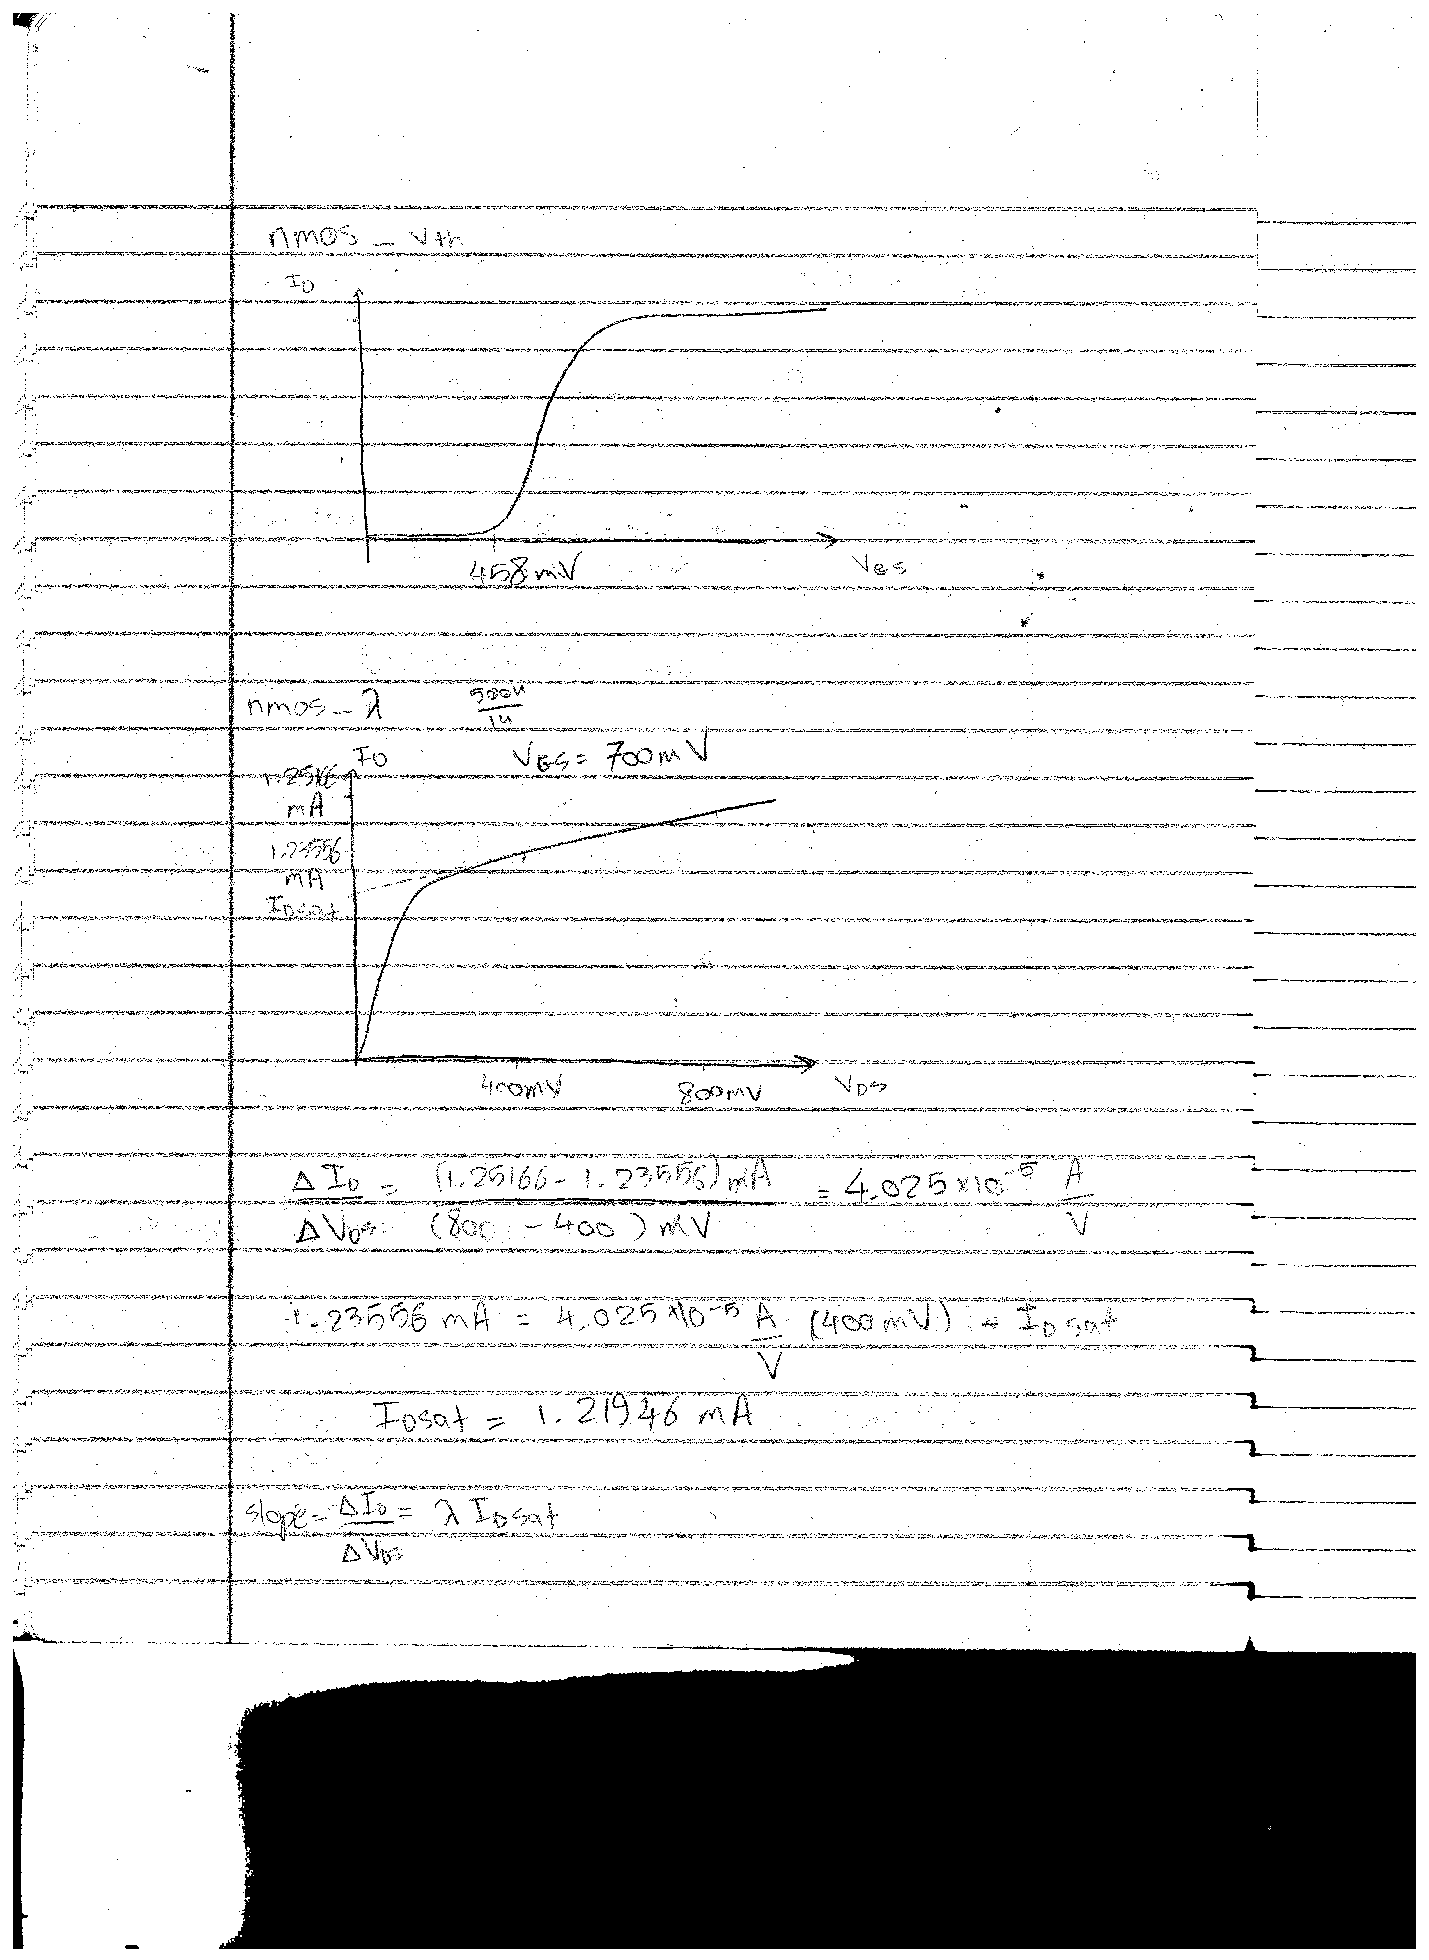 nmos - Vth
ID
458mV
VGS
nmos - λ
1u
ID
VGS = 700mV
mA
1.23556
mA
IDsat
400mV 800mV VDS
ΔID/ΔVDS = (1.25166 - 1.23556) mA / (800 - 400) mV = 4.025 x10^-5 A/V
1.23556 mA = 4.025 x10^-5 A/V (400mV) + IDsat
IDsat = 1.21946 mA
slope = ΔID/ΔVDS = λ IDsat